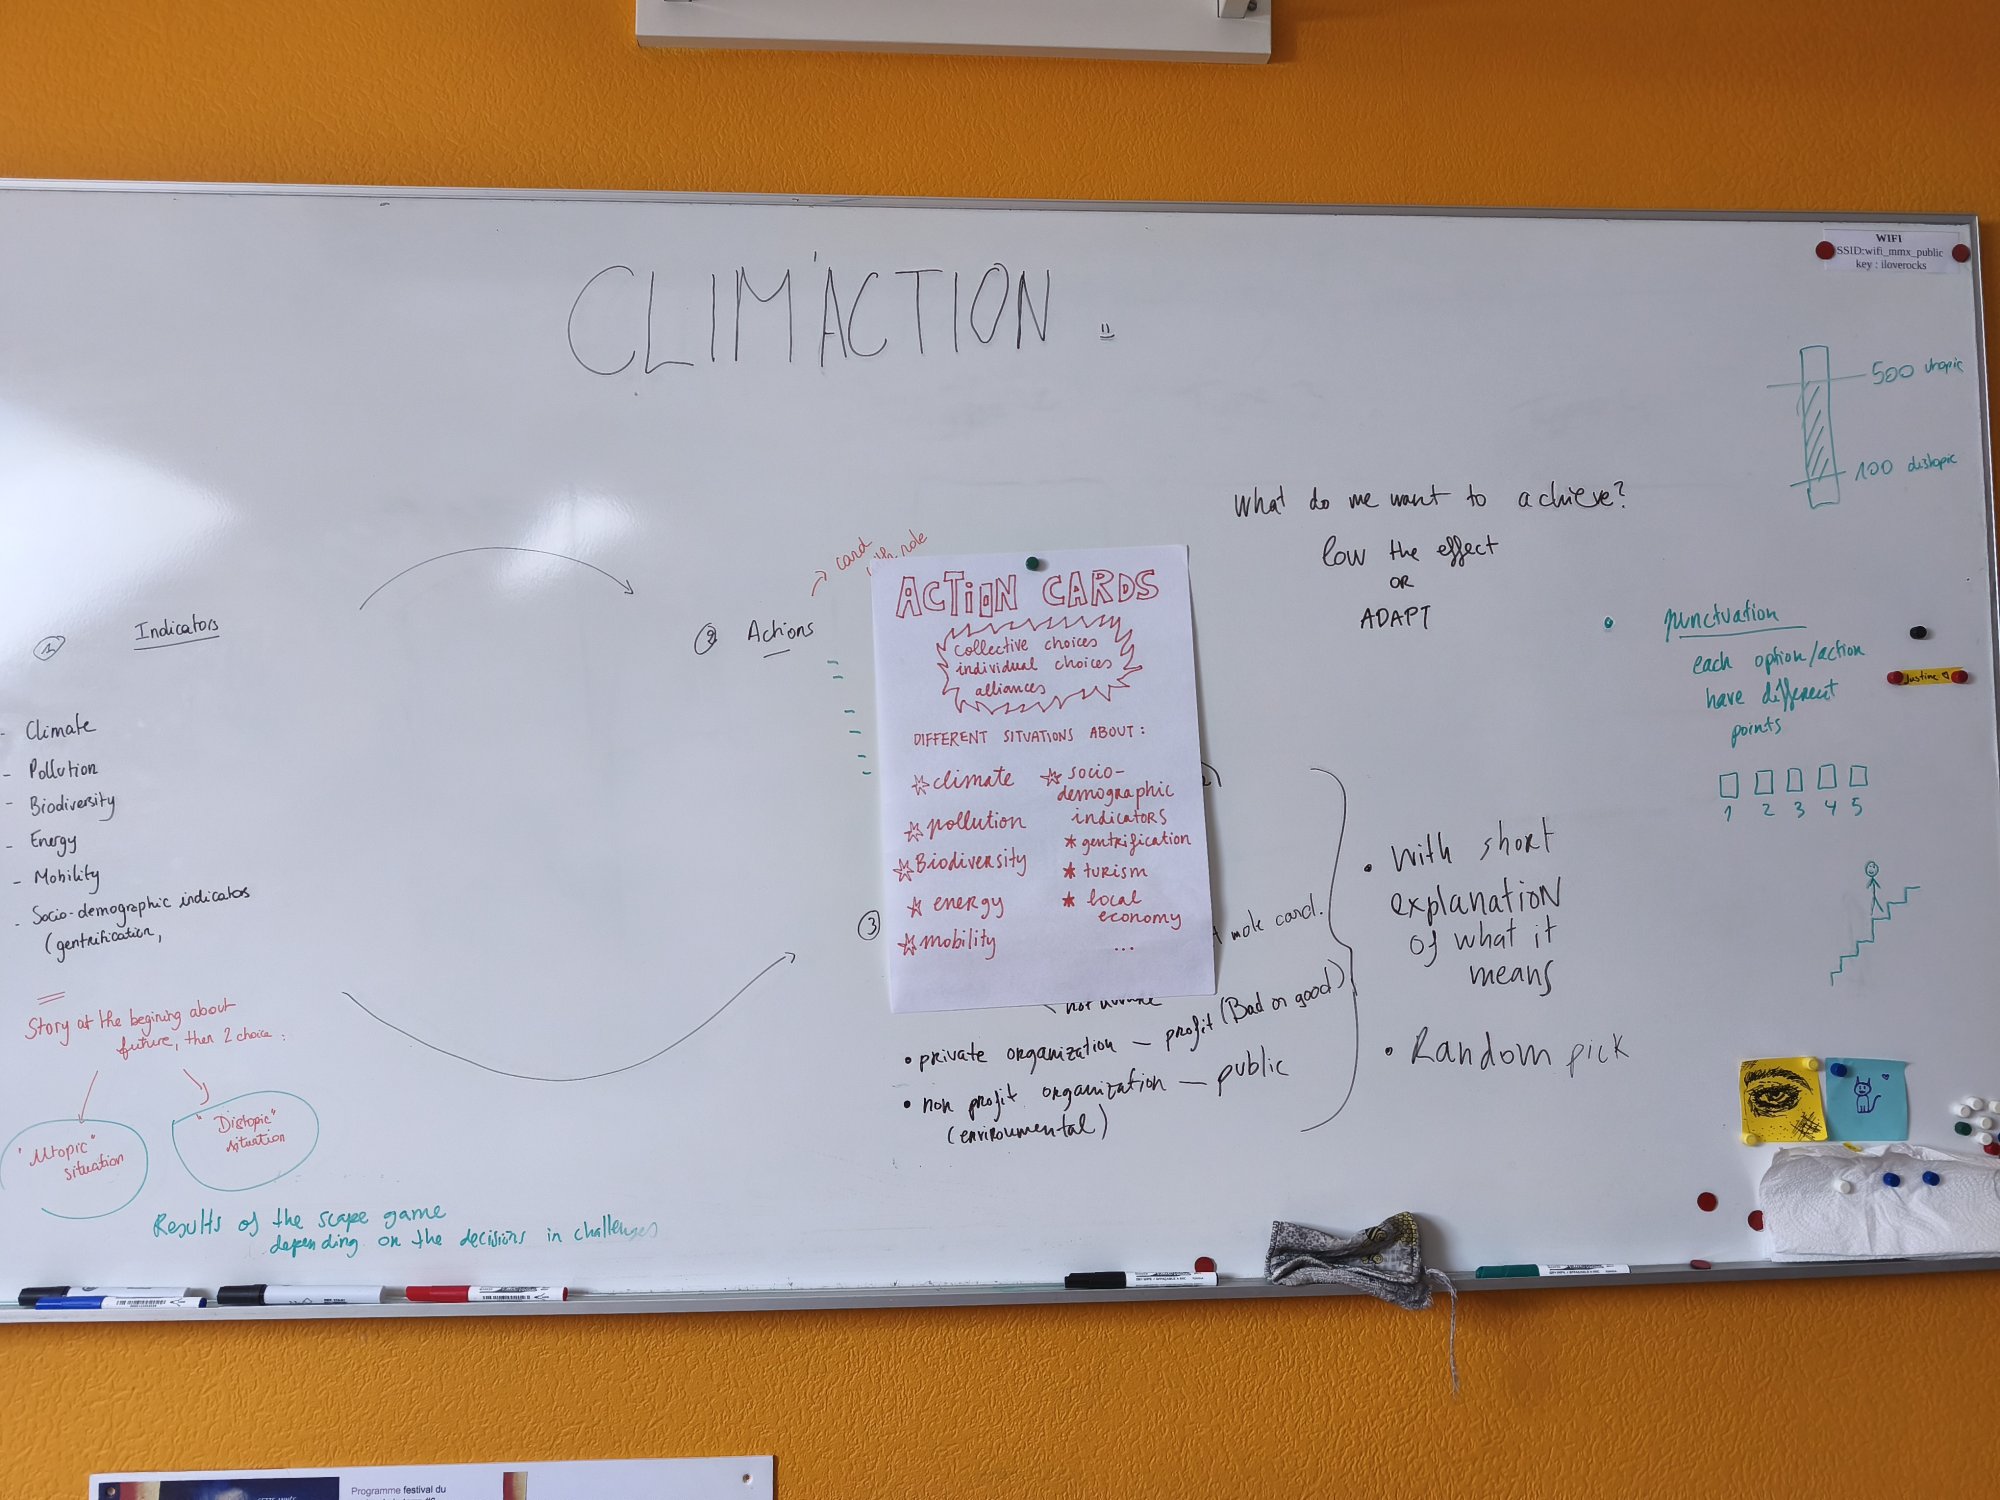 WIFI
SSID:wifi_mmx_public
key : iloverocks
CLIM'ACTION
500 utopic
100 distopic
What do we want to achieve?
low the effect
OR
ADAPT
1 Indicators
- Climate
- Pollution
- Biodiversity
- Energy
- Mobility
- Socio-demographic indicators
(gentrification,
Story at the begining about
future, then 2 choice :
"Utopic"
situation
"Distopic"
situation
Results of the scape game
depending on the decisions in challenges
2 Actions
card
with role
ACTION CARDS
collective choices
individual choices
alliances
DIFFERENT SITUATIONS ABOUT :
climate
pollution
Biodiversity
energy
mobility
socio-
demographic
indicators
* gentrification
* turism
* local
economy
...
3
card.
• private organization – profit (Bad or good)
• non profit organization – public
(enviroumental)
• With short
explanation
of what it
means
• Random pick
• punctuation
each option/action
have different
points
1 2 3 4 5
Justine
Programme festival du